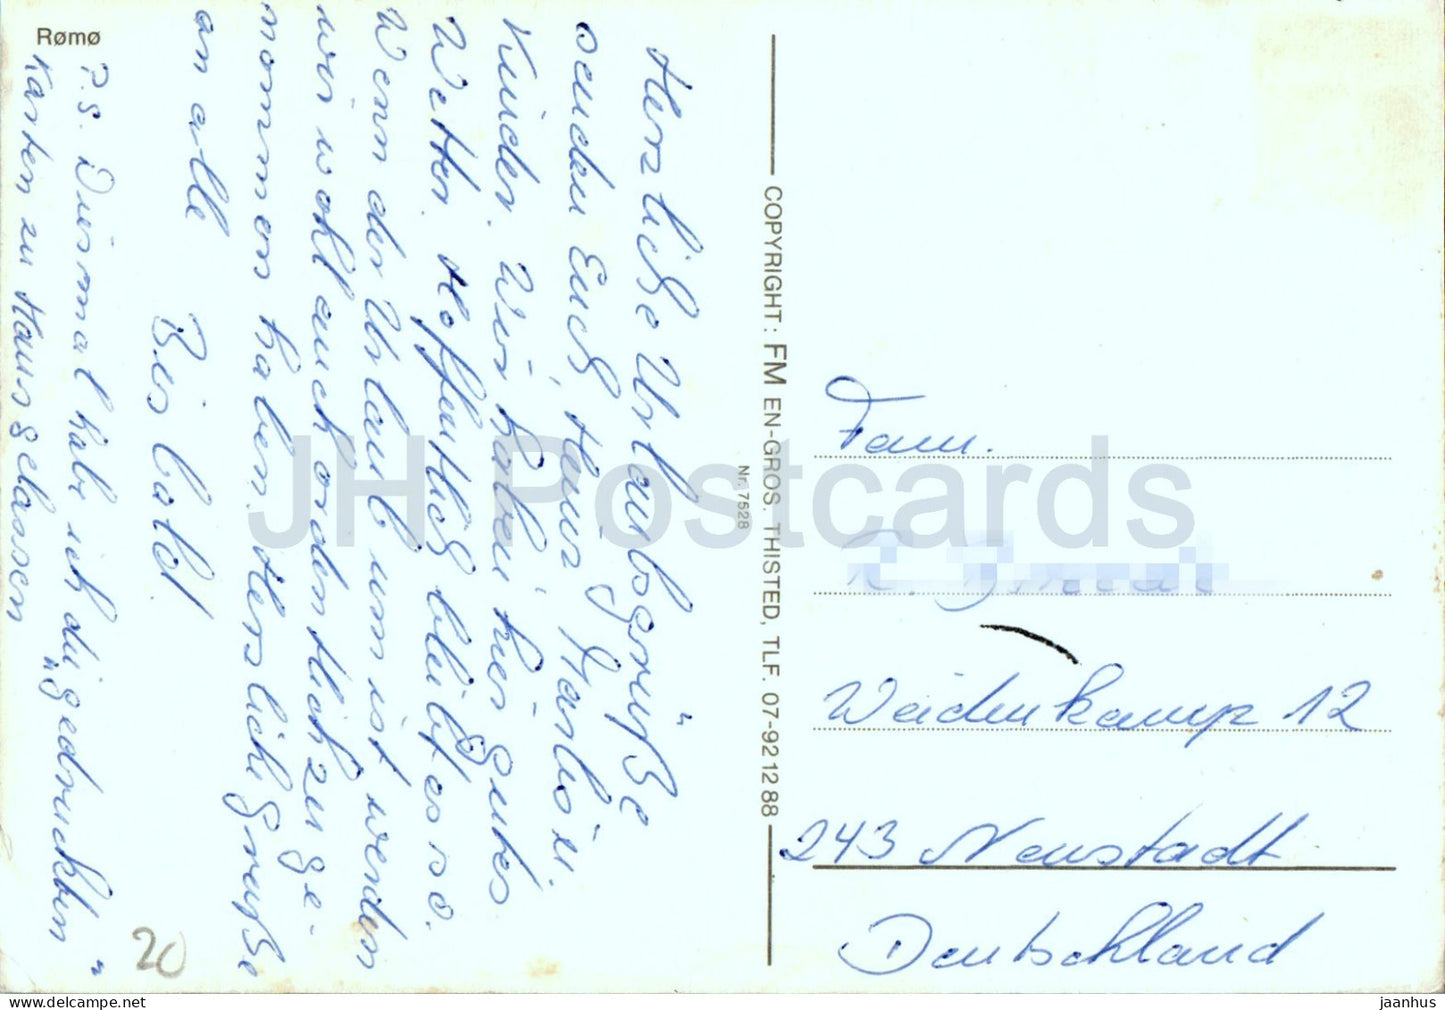 Rømø
Herzliche Urlaubsgrüße
senden Euch, Hans, Karlsiu.
Kinder. Wir haben hier gutes
Wetter. Hoffentlich bleibt es so.
Wenn der Urlaub um ist werden
wir wohl auch ordentlich zuge-
nommen haben. Herzliche Grüße
an alle
Bis bald!
P.S. Diesmal habe ich die "gedruckten"
Karten zu Haus gelassen
COPYRIGHT: FM EN-GROS. THISTED, TLF. 07-92 12 88
Nr. 7528
Fam.
Weidenkamp 12
243 Neustadt
Deutschland
20
JH Postcards
jaanhus @ myshopify.com